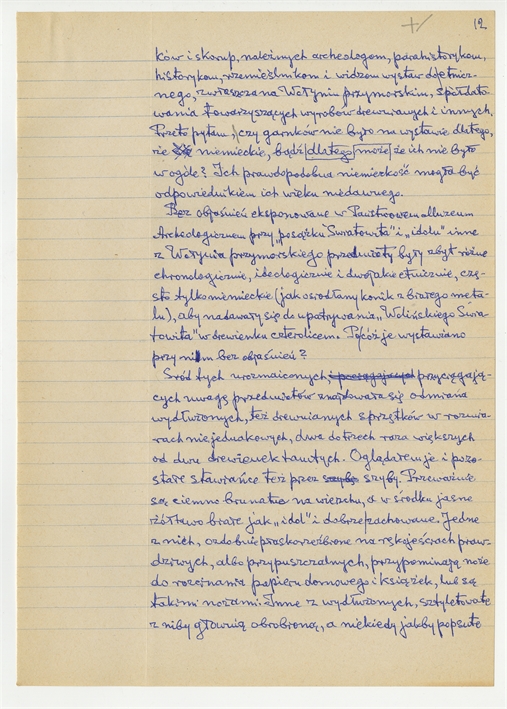 12
ków i skorup, należnych archeologom, parahistorykom,
historykom, rzemieślnikom i widzom wystaw dojętnicz-
nego, zwłaszcza na Wołyniu przymorskim,
wania towarzyszących wyrobów drewnianych i innych.
Przeto pytam: czy garnków nie było na wystawie dlatego,
że niemieckie, bądź dlatego może że ich nie było
w ogóle? Ich prawdopodobna niemieckość mogła być
odpowiednikiem ich wieku niedawnego.
Bez objaśnień eksponowane w Państwowem Muzeum
Archeologicznem przy „posążku Światowita" i „idolu" inne
z Wołynia przymorskiego przedmioty były zbyt różne
chronologicznie, ideologicznie i dwojako etnicznie, czę-
sto tylko niemieckie (jak osiodłany konik z białego meta-
lu), aby nadawały się do upatrywania „Wolińskiego Świa-
towita" w drewienku czterolicem. Pocóż je wystawiano
przy nim bez objaśnień?
Śród tych urozmaiconych, przyciągają-
cych uwagę przedmiotów znajdowała się odmiana
wydłużonych, też drewnianych sprzętków w rozmia-
rach niejednakowych, dwa do trzech razy większych
od dwu drewienek tamtych. Oglądałem je i pozo-
stałe stawiańce też przez szyby. Przeważnie
są ciemno brunatne na wierzchu, a w środku jasne
żółtawo białe jak „idol" i dobrze zachowane. Jedne
z nich, ozdobnie płaskorzeźbione na rękojeściach praw-
dziwych, albo przypuszczalnych, przypominają noże
do rozcinania papieru domowego i książek, lub są
takimi nożami. Inne z wydłużonych, sztyletowate
z niby głownią obrobioną, a niekiedy jakby popsute